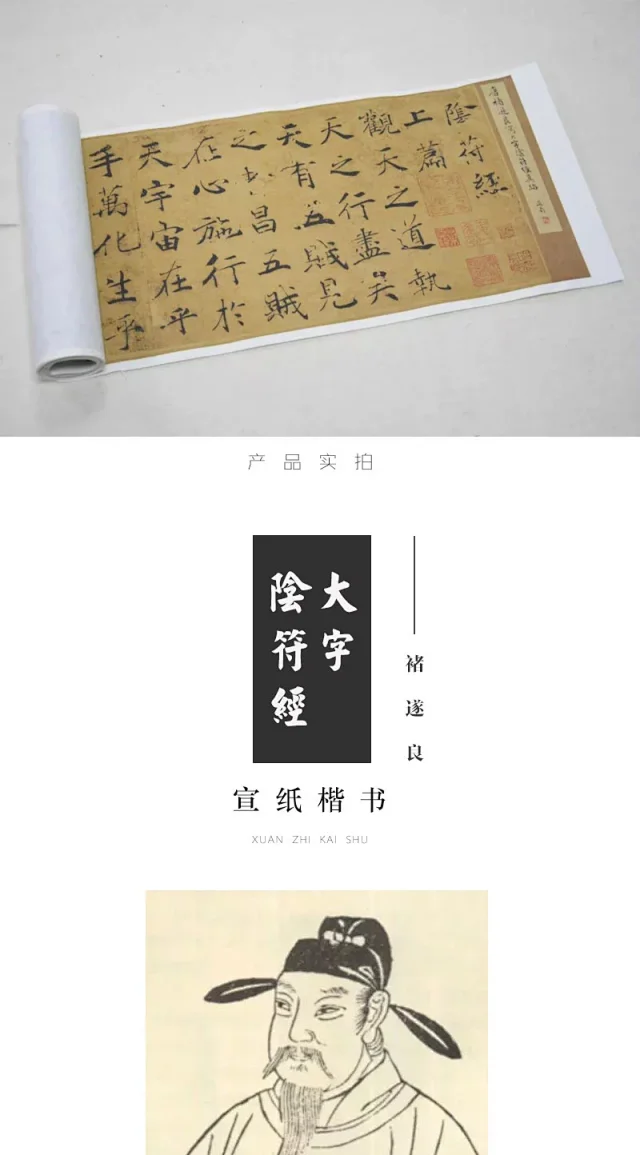 陰符經
上篇
觀天之道執
天之行盡矣
天有五賊見
之者昌五賊
在心施行於
天宇宙在乎
手萬化生乎
产品实拍
大字
陰符經
褚遂良
宣纸楷书
XUAN ZHI KAI SHU